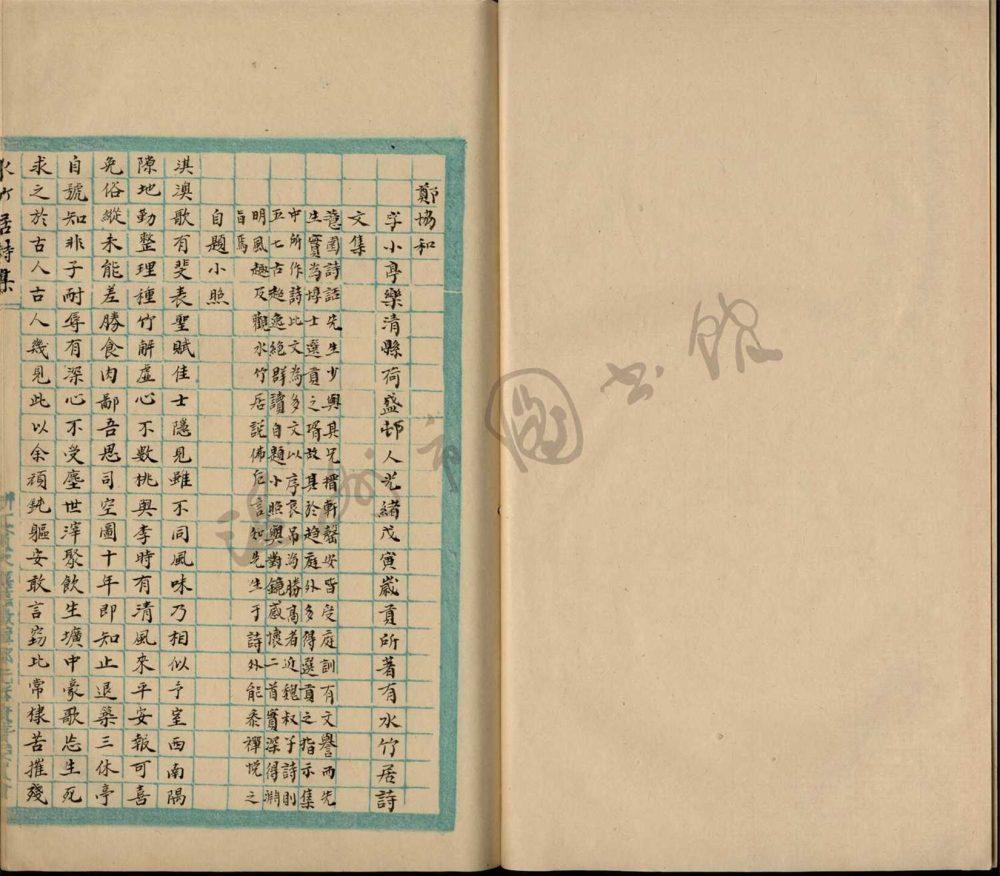 鄭協和
字小亭樂清縣荷盛邨人光緒戊寅歲貢所著有水竹居詩
文集
薏園詩話先生少與其兄搢軒馨安皆受庭訓有文譽而先
生實為博士選貢之壻故其於趨庭外多得選貢之指示集
中所作詩比文為多文以序哀吊為勝高者近魏叔子詩則
五七古超逸絕群讀自題小照與對鏡感懷二首實深得淵
明風趣及觀水竹居說佛卮言知先生于詩外能參禪悅之
旨焉
自題小照
淇澳歌有斐表聖賦佳士隱見雖不同風味乃相似予室西南隅
隙地勤整理種竹解虛心不數桃與李時有清風來平安報可喜
免俗縱未能差勝食肉鄙吾思司空圖十年即知止退築三休亭
自號知非子耐辱有深心不受塵世滓聚飲生壙中豪歌忘生死
求之於古人古人幾見此以余頑鈍軀安敢言竊比常棣苦摧殘
水竹居詩集
圖書館